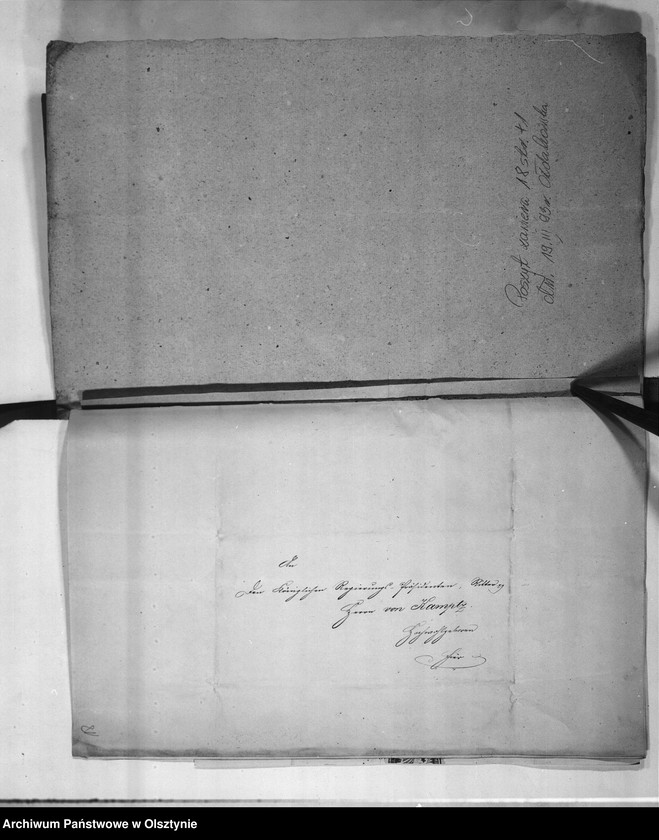 Poszyt zawiera 18 str. + 1
dn. 19.III.99r.
An
den Königlichen Regierungs-Präsidenten, Ritter pp
Herrn von Kamptz.
Hochwohlgeboren
hier
18
Archiwum Państwowe w Olsztynie